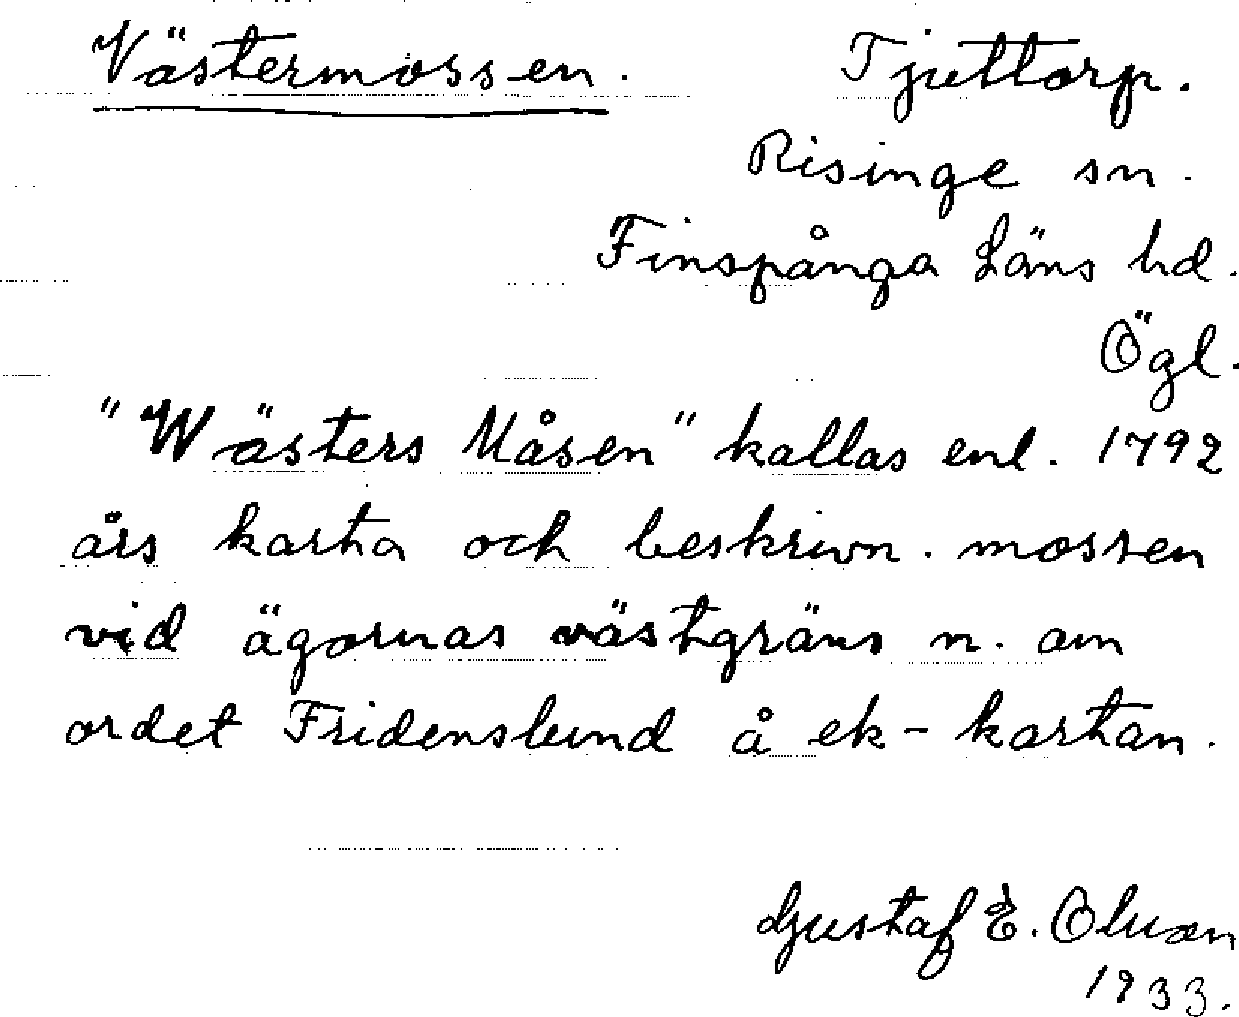 Västermossen. Tjuttorp.
Risinge sn.
Finspånga Läns hd.
Ögl.
"Wästers Måsen" kallas enl. 1792
års karta och beskrivn. mossen
vid ägornas västgräns n. om
ordet Fridenslund å ek-kartan.
Gustaf E.
1933.